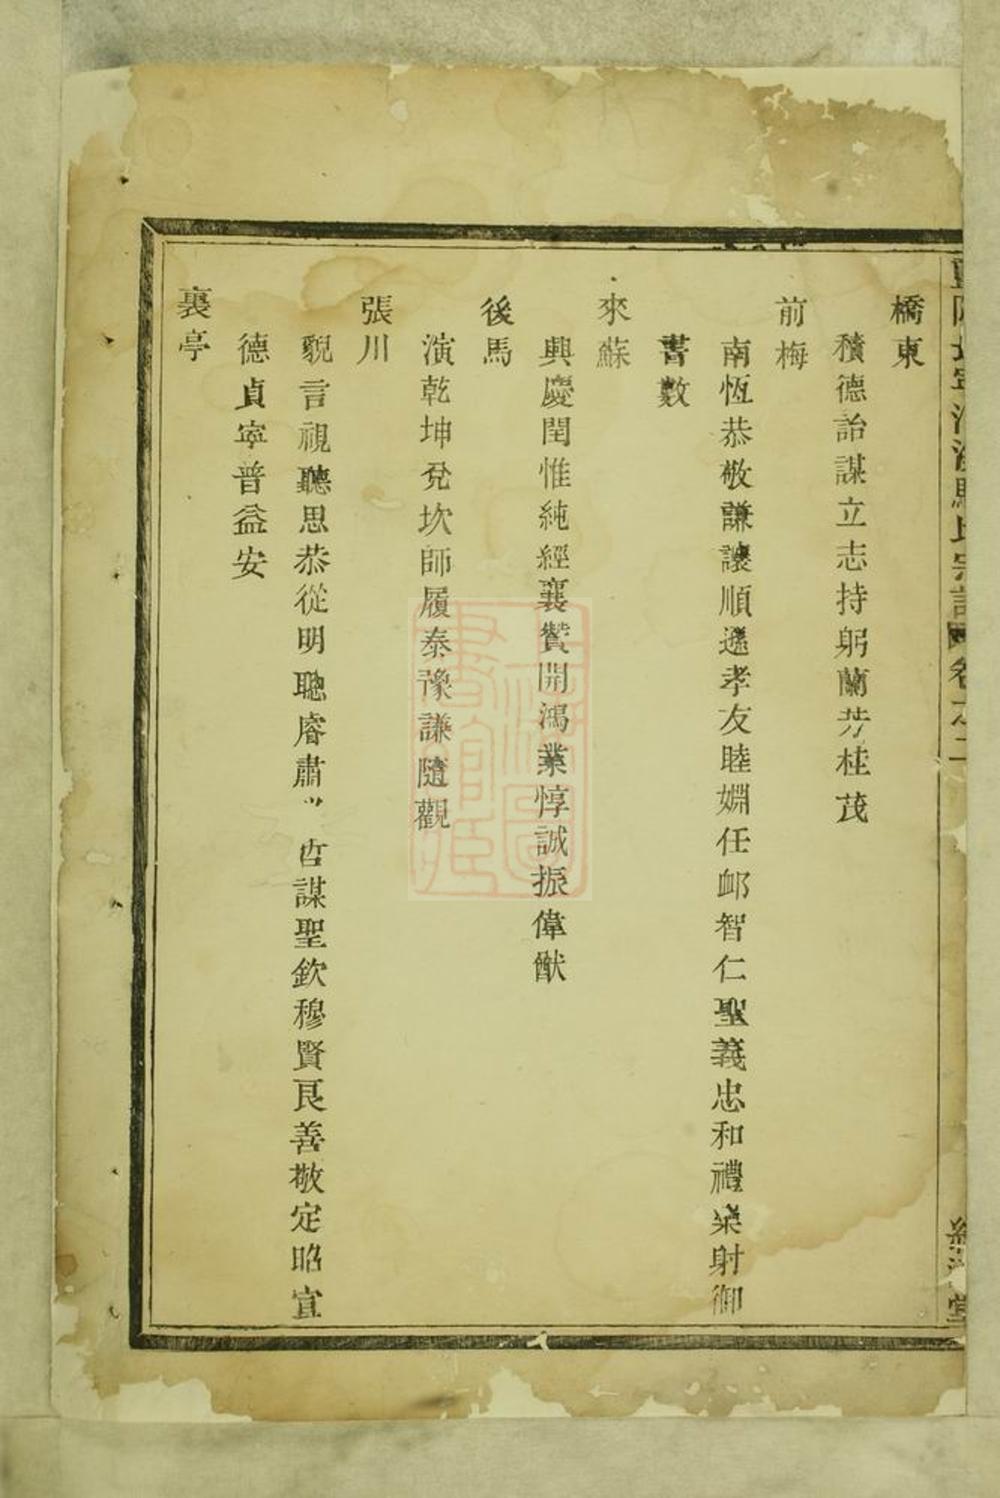 橋東
積德詒謀立志持躬蘭芳桂茂
前梅
南恆恭敬謙讓順遜孝友睦婣任䘏智仁聖義忠和禮樂射御
書數
來蘇
興慶閏惟純經襄贊開鴻業惇誠振偉猷
後馬
演乾坤兌坎師履泰豫謙隨觀
張川
貌言視聽思恭從明聰睿肅 哲謀聖欽穆賢良善敬定昭宣
德貞寧普益安
裏亭
上海圖書館藏